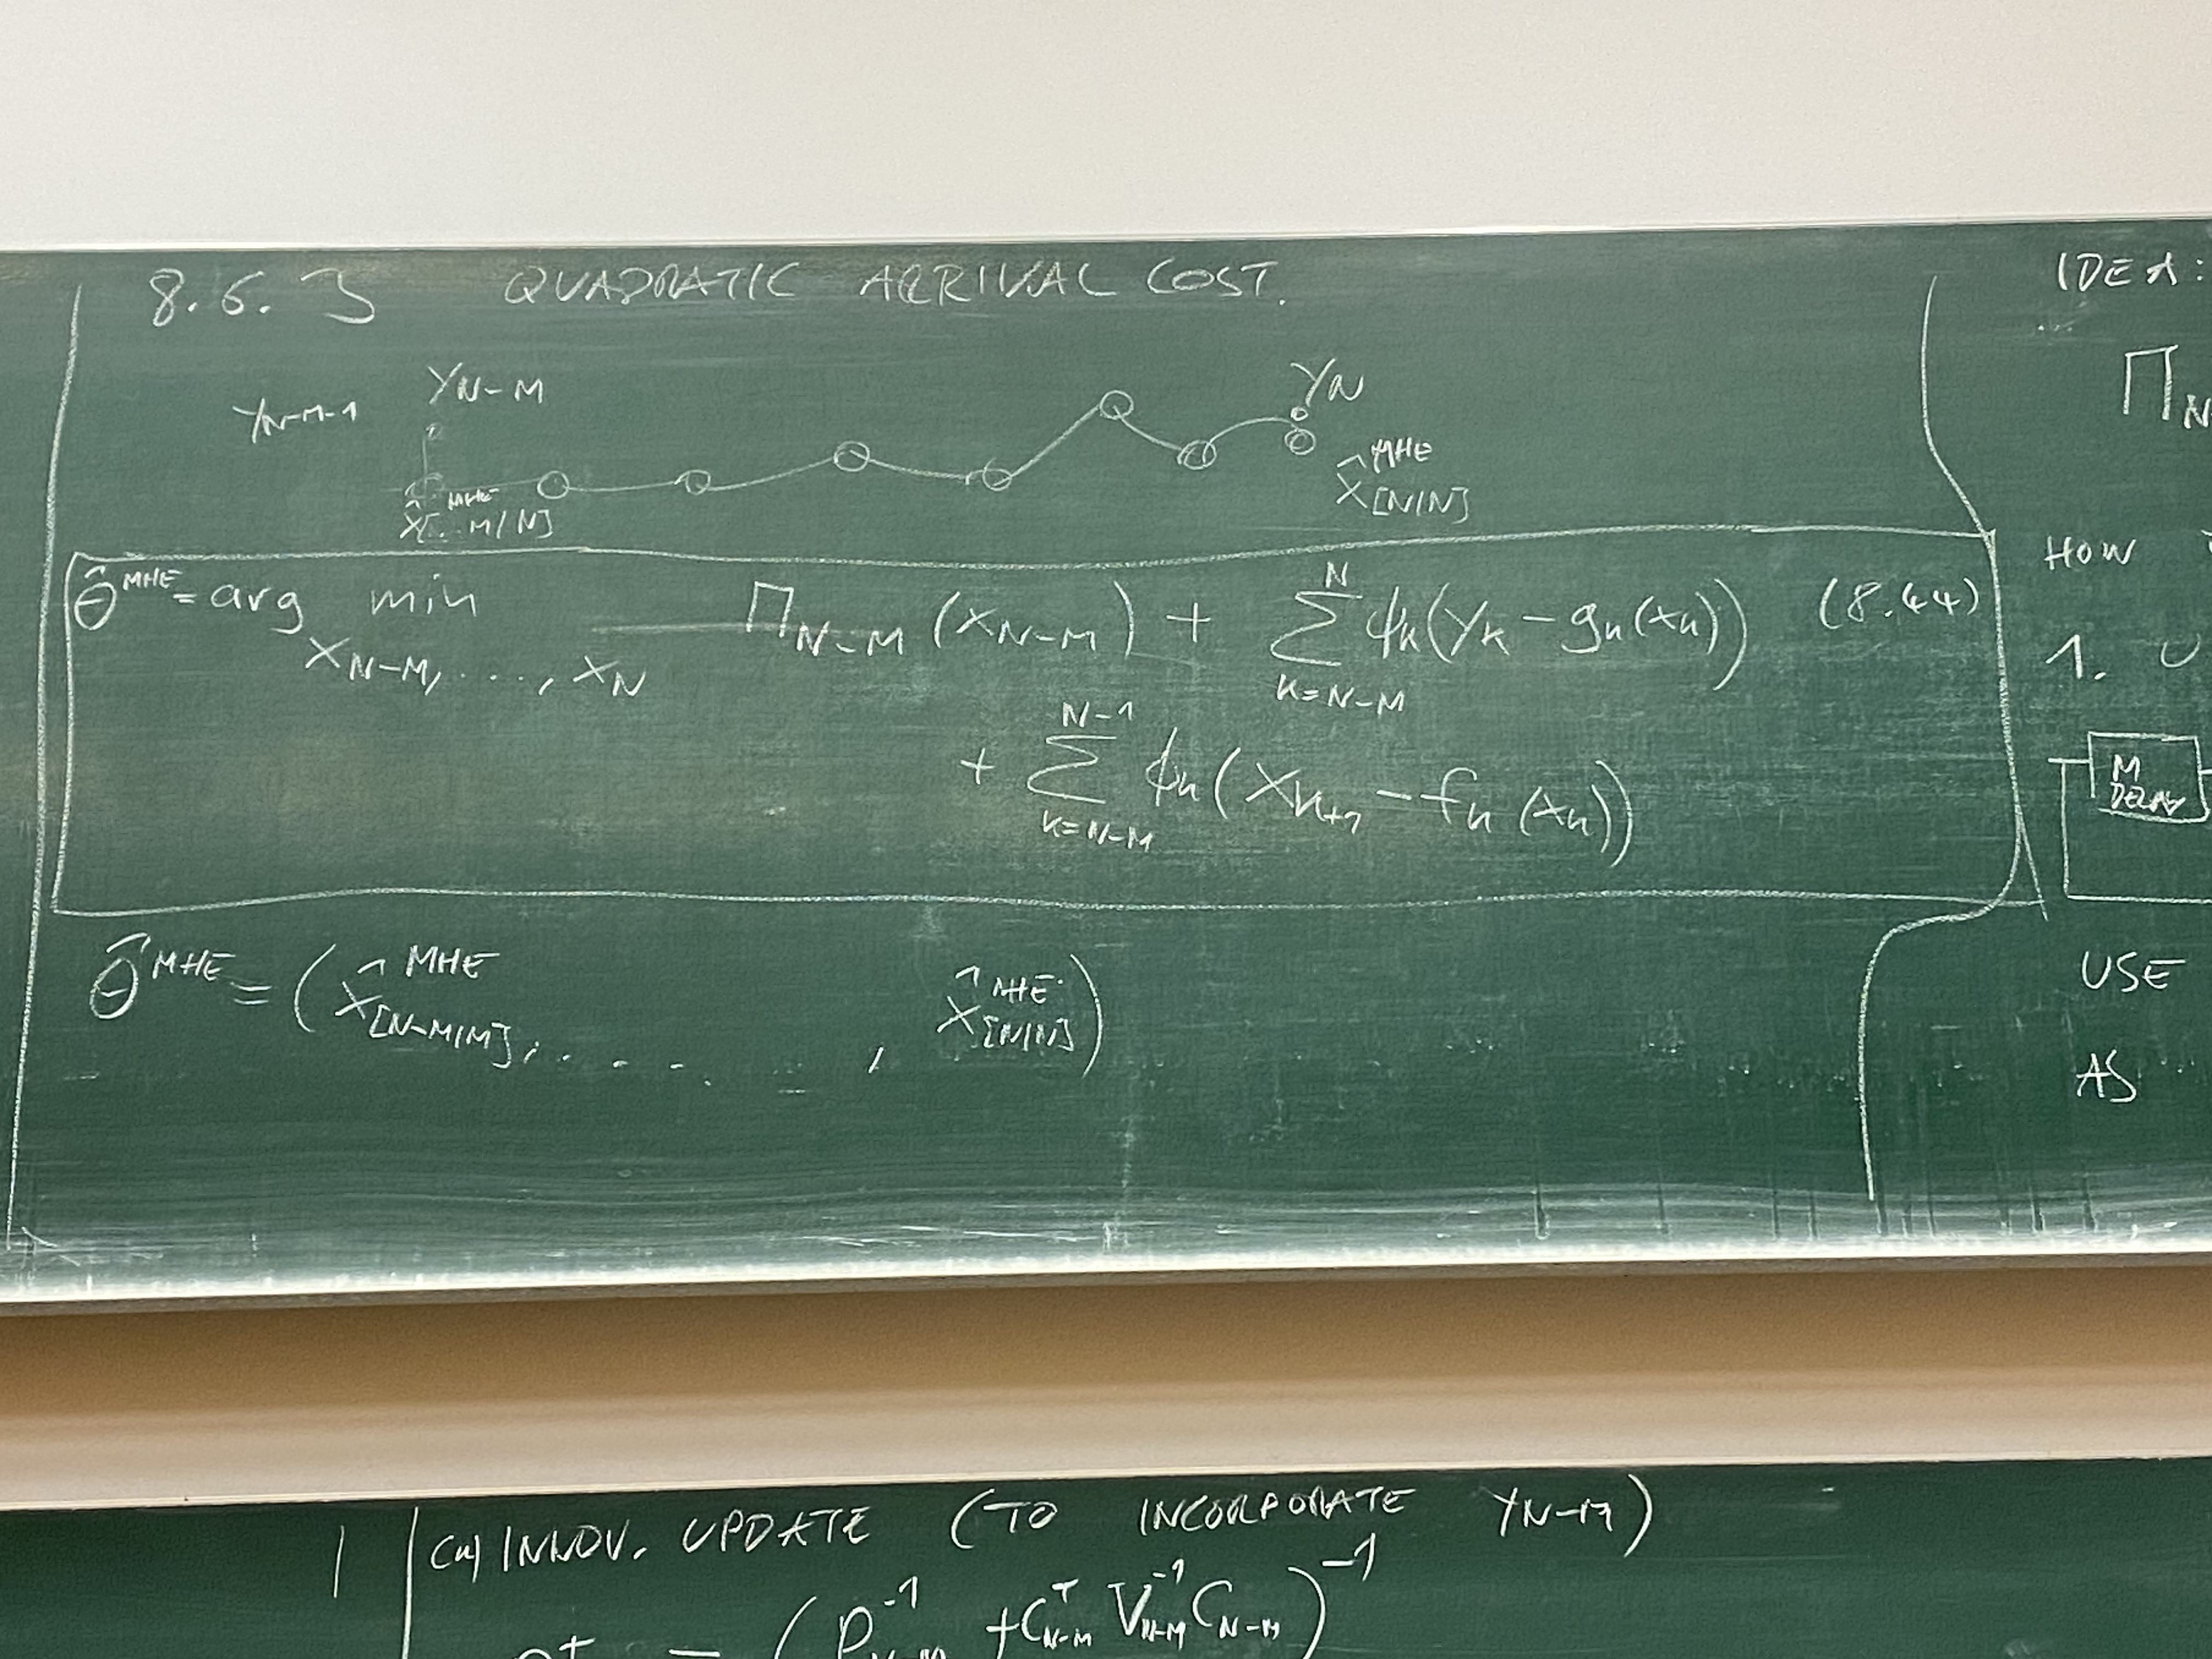 8.6.3 QUADRATIC ARRIVAL COST.
y_{N-M-1} y_{N-M} y_N
x̂^{MHE}_{[...M|N]} x̂^{MHE}_{[N|N]}
θ̂^{MHE} = arg min_{x_{N-M}, ..., x_N} Π_{N-M}(x_{N-M}) + Σ_{k=N-M}^{N} ψ_k(y_k - g_k(x_k)) (8.44)
+ Σ_{k=N-M}^{N-1} ϕ_k(x_{k+1} - f_k(x_k))
θ̂^{MHE} = (x̂^{MHE}_{[N-M|M]}, ......, x̂^{MHE}_{[N|N]})
IDEA:
Π_N
HOW
1. U
M
DELAY
USE
AS
(4) INNOV. UPDATE (TO INCORPORATE y_{N-M})
P^+ = (P^{-1}_{N-M} + C^T_{N-M} V^{-1}_{N-M} C_{N-M})^{-1}